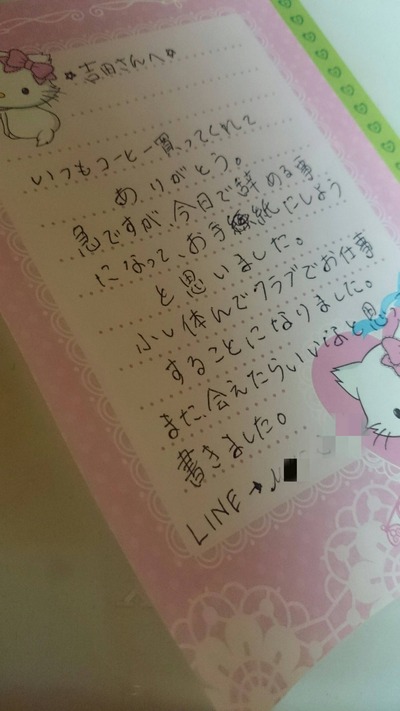 ☆吉田さんへ☆
いつもコーヒー買ってくれて
ありがとう。
急ですが、今日で辞める事
になって、お手紙にしよう
と思いました。
少し休んでクラブでお仕事
することになりました。
まだ、会えたらいいなと思って
書きました。
LINE→